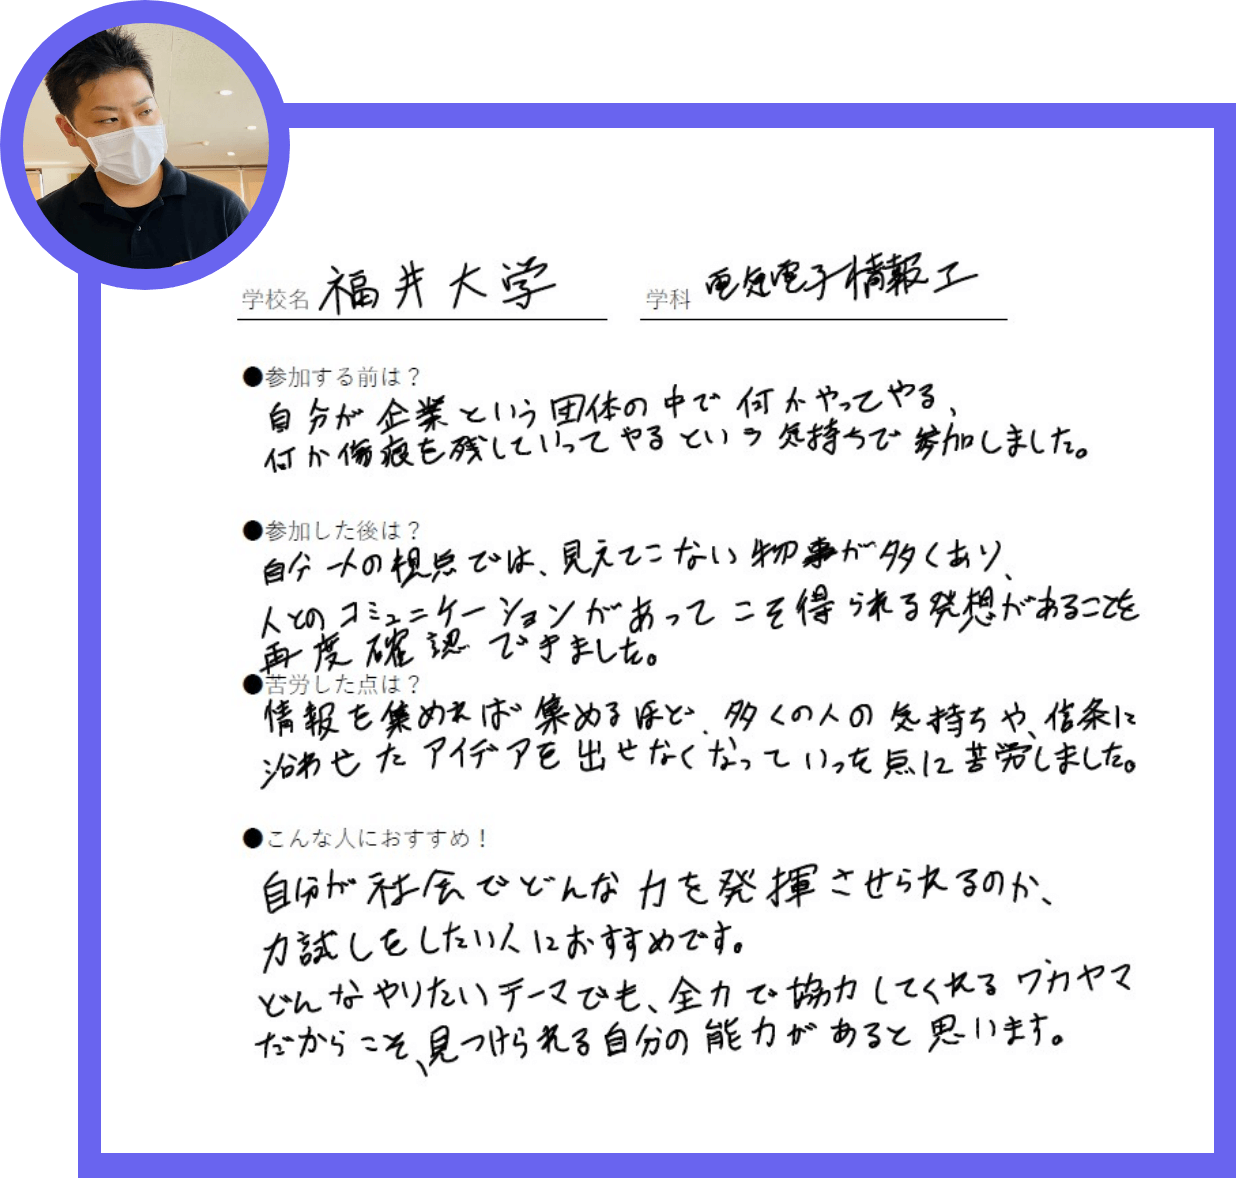 学校名 福井大学 学科 電気電子情報工
●参加する前は?
自分が企業という団体の中で何かやってやる、
何か傷痕を残していってやるという気持ちで参加しました。
●参加した後は?
自分一人の視点では、見えてこない物事が多くあり、
人とのコミュニケーションがあってこそ得られる発想があることを
再度確認できました。
●苦労した点は?
情報を集めれば集めるほど、多くの人の気持ちや、信条に
沿わせたアイデアを出せなくなっていった点に苦労しました。
●こんな人におすすめ!
自分が社会でどんな力を発揮させられるのか、
力試しをしたい人におすすめです。
どんなやりたいテーマでも、全力で協力してくれるワカヤマ
だからこそ、見つけられる自分の能力があると思います。